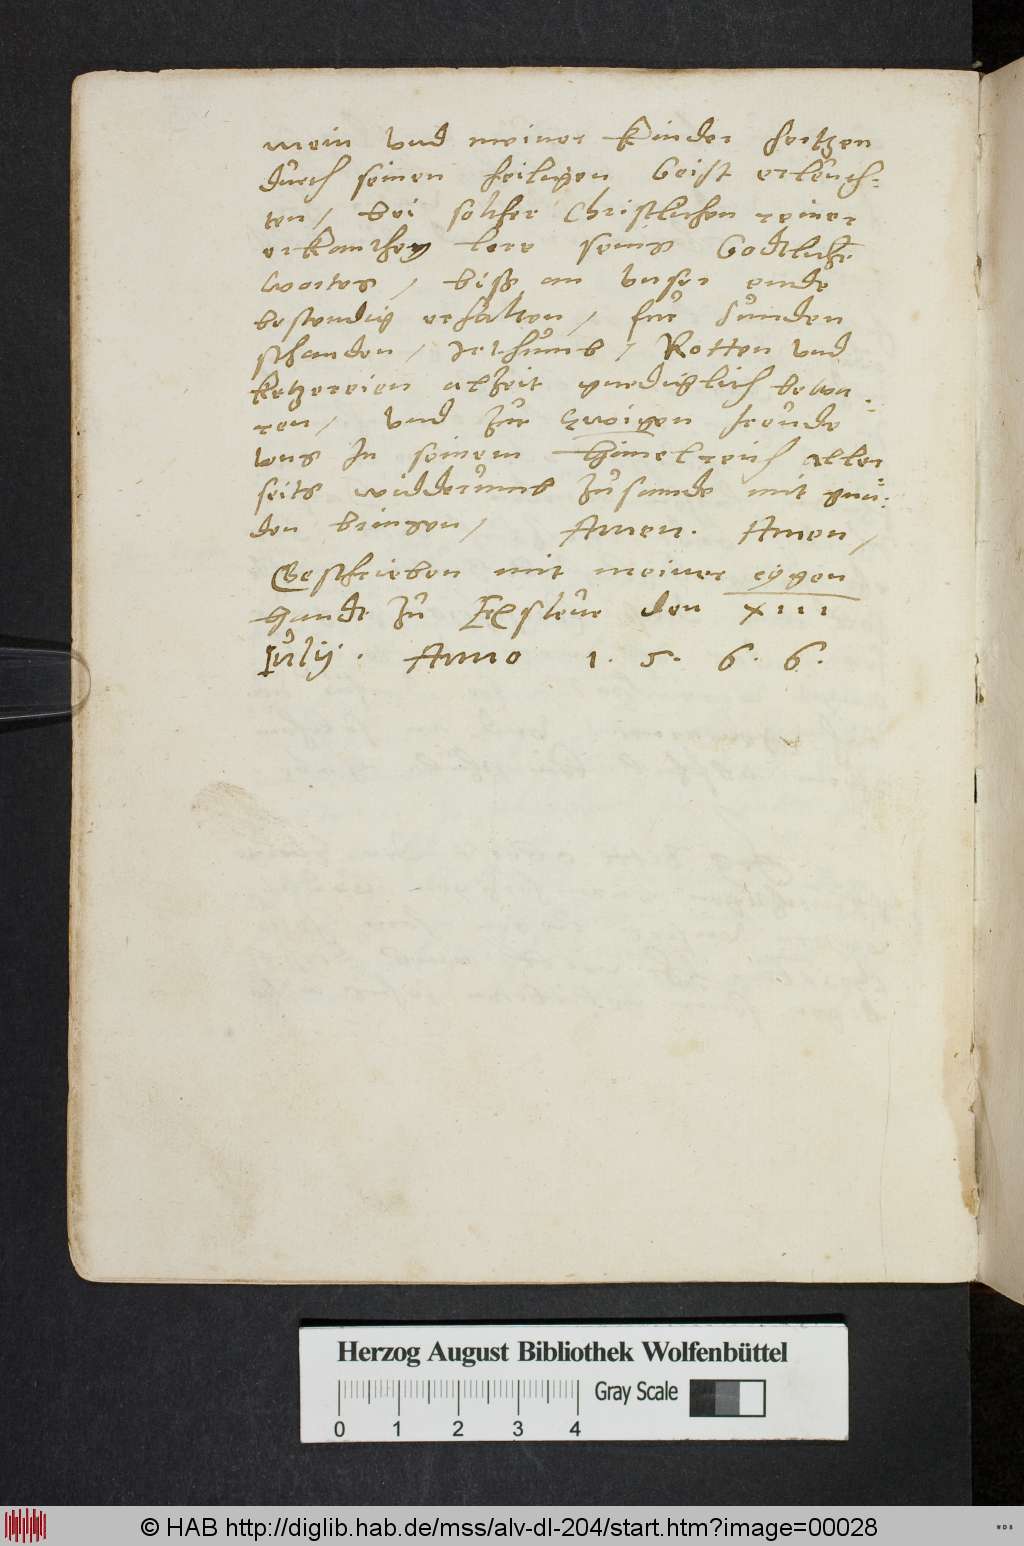 mein vnd meiner Kinder hertzen
durch seinen heiligen Geist erleuch-
ten, bei solcher Christlichen reiner
erkanthen lere seins Godtlichē
wortes, biss an vnser ende
bestendig erhalten, für Sunden
schanden, Irthumb, Rotten vnd
ketzereien alzeit gnediglich bewa-
ren, vnd zur ewigen freude
vns In seinem Himelreich aller
seits widderumb zusamde mit gnā-
den bringen, Amen. Amen,
Geschrieben mit meiner eygen
Hande zu den XIII
Iulij. Anno 1. 5. 6. 6.
Herzog August Bibliothek Wolfenbüttel
Gray Scale
0 1 2 3 4
© HAB http://diglib.hab.de/mss/alv-dl-204/start.htm?image=00028